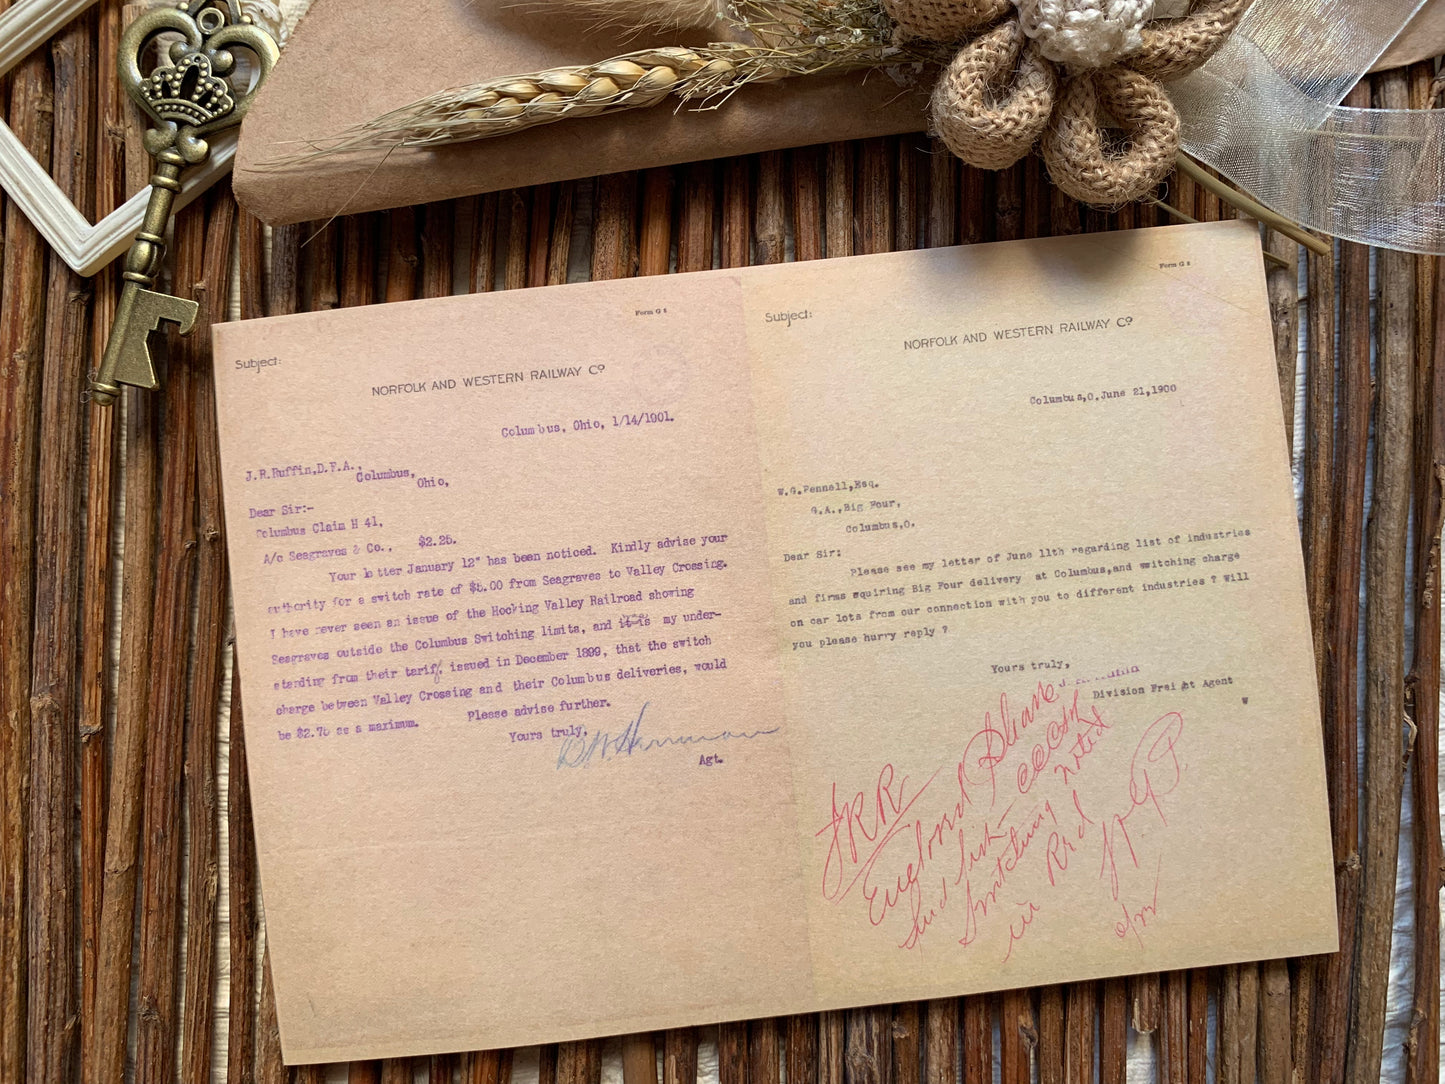 Form G 8
Subject:
NORFOLK AND WESTERN RAILWAY Co
Columbus, Ohio, 1/14/1901.
J.R.Ruffin,D.F.A.,
Columbus,
Ohio,
Dear Sir:-
Columbus Claim H 41,
A/c Seagraves & Co., $2.25.
Your letter January 12" has been noticed. Kindly advise your
authority for a switch rate of $5.00 from Seagraves to Valley Crossing.
I have never seen an issue of the Hocking Valley Railroad showing
Seagraves outside the Columbus Switching limits, and it is my under-
standing from their tariff, issued in December 1899, that the switch
charge between Valley Crossing and their Columbus deliveries, would
be $2.75 as a maximum. Please advise further.
Yours truly,
Agt.
Form G 8
Subject:
NORFOLK AND WESTERN RAILWAY Co
Columbus,O.June 21,1900
W.G.Pennell,Esq.
G.A.,Big Four,
Columbus,O.
Dear Sir:
Please see my letter of June 11th regarding list of industries
and firms rquiring Big Four delivery at Columbus,and switching charge
on car lots from our connection with you to different industries ? Will
you please hurry reply ?
Yours truly,
Division Freight Agent
W
JRR
Enclosed Please
find list
switching noted
in Red